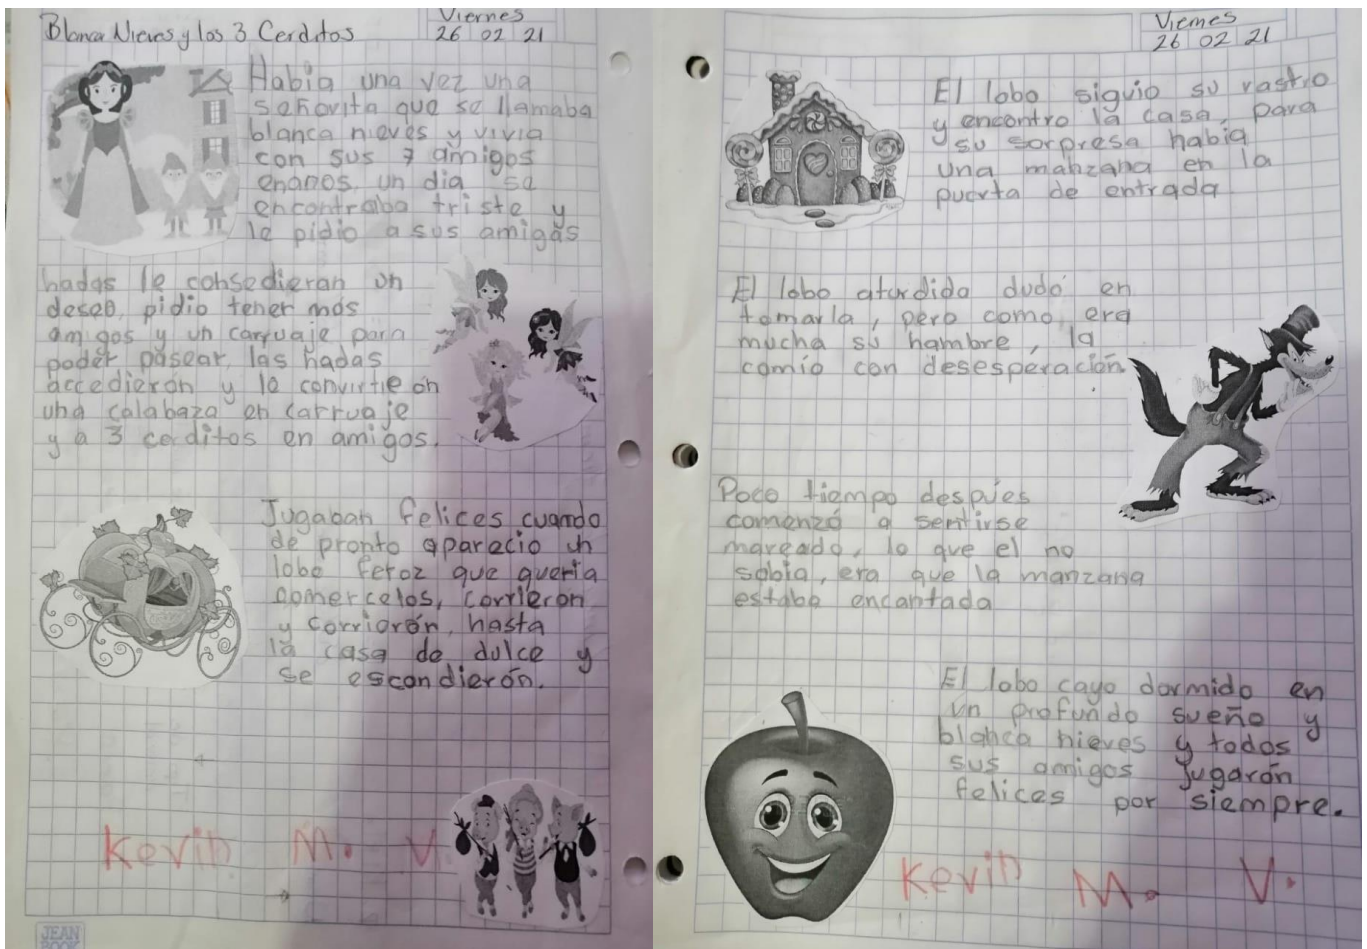 Blanca Nieves y los 3 Cerditos
Viernes
26 02 21
Había una vez una
señorita que se llamaba
blanca nieves y vivia
con sus 7 amigos
enanos, un dia se
encontraba triste y
le pidio a sus amigas
hadas le consedieran un
deseo, pidio tener más
amigos y un carruaje para
poder pasear, las hadas
accedierón y le convirtieón
una calabaza en carruaje
y a 3 cerditos en amigos.
Jugaban felices cuando
de pronto aparecio un
lobo feroz que queria
comercelos, corrieron
y corriorón, hasta
la casa de dulce y
se escondierón.
Kevin M. V.
JEAN
BOOK
Viernes
26 02 21
El lobo siguio su rastro
y encontro la casa, para
su sorpresa habia
una manzana en la
puerta de entrada
El lobo aturdido dudó en
tomarla, pero como era
mucha su hambre, la
comío con desesperación
Poco tiempo despúes
comenzó a sentirse
mareado, lo que el no
sabia, era que la manzana
estaba encantada
El lobo cayo dormido en
un profundo sueño y
blanca nieves y todos
sus amigos jugarón
felices por siempre.
Kevin M. V.